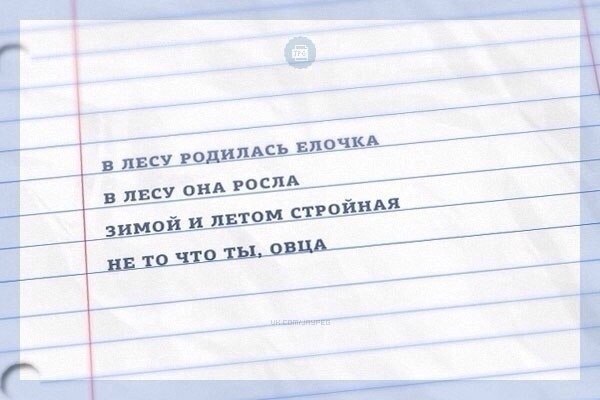 В ЛЕСУ РОДИЛАСЬ ЕЛОЧКА
В ЛЕСУ ОНА РОСЛА
ЗИМОЙ И ЛЕТОМ СТРОЙНАЯ
НЕ ТО ЧТО ТЫ, ОВЦА
VK.COM/JAYPEG